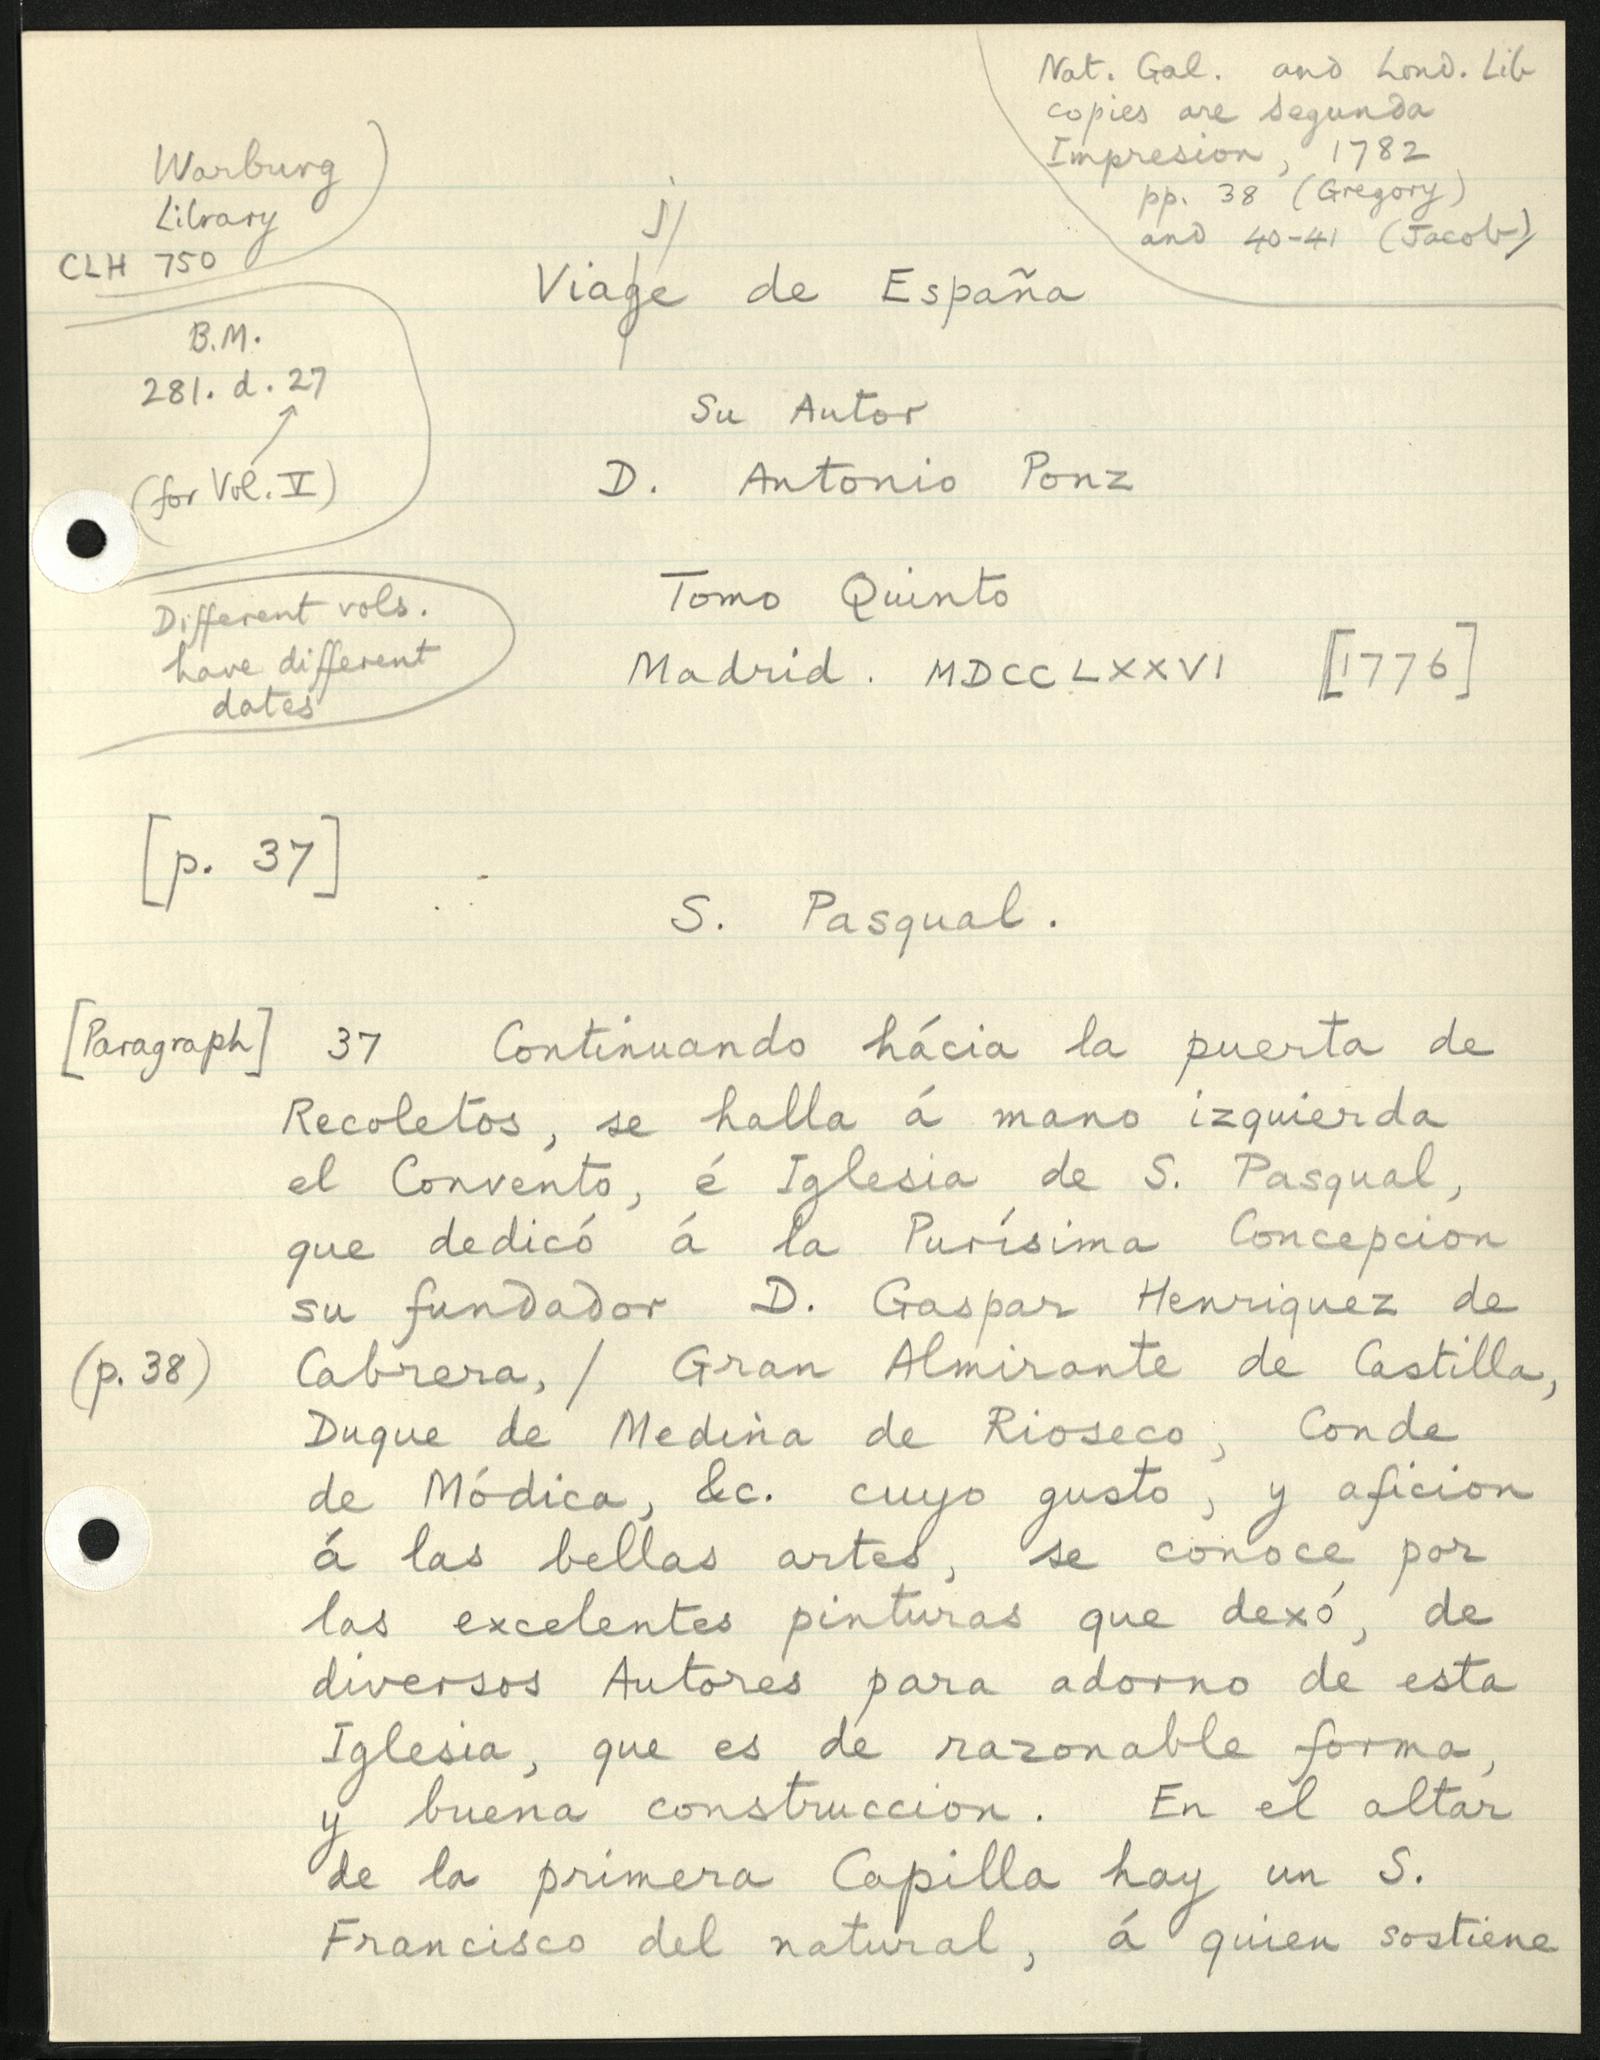 Nat. Gal. and Lond. Lib
copies are segunda
Impresion, 1782
pp. 38 (Gregory)
and 40-41 (Jacob)
Warburg
Library
CLH 750
B.M.
281. d. 27
(for Vol. V)
Different vols.
have different
dates
j/
Viage de España
Su Autor
D. Antonio Ponz
Tomo Quinto
Madrid. MDCCLXXVI [1776]
[p. 37]
S. Pasqual.
[Paragraph] 37 Continuando hácia la puerta de
Recoletos, se halla á mano izquierda
el Convento, é Iglesia de S. Pasqual,
que dedicó á la Purísima Concepcion
su fundador D. Gaspar Henriquez de
(p. 38) Cabrera, / Gran Almirante de Castilla,
Duque de Medina de Rioseco, Conde
de Módica, &c. cuyo gusto, y aficion
á las bellas artes, se conoce por
las excelentes pinturas que dexó, de
diversos Autores para adorno de esta
Iglesia, que es de razonable forma,
y buena construccion. En el altar
de la primera Capilla hay un S.
Francisco del natural, á quien sostiene